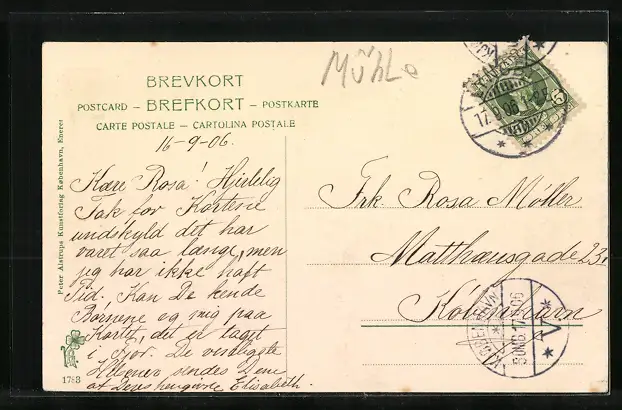 Mühle
BREVKORT
POSTCARD – BREFKORT – POSTKARTE
CARTE POSTALE – CARTOLINA POSTALE
16-9-06.
Kære Rosa! Hjertelig
Tak for Kortene
undskyld det har
varet saa længe, men
jeg har ikke haft
Tid. Kan De kende
Børnene og mig paa
Kortet, det er taget
i Fjor. De venligste
Hilsener sendes Dem
af Deres hengivne Elisabeth.
Frk. Rosa Møller
Matthæusgade 23,
København
Peter Alstrups Kunstforlag København, Eneret
1783
17.9.06
KJØBENHAVN
V